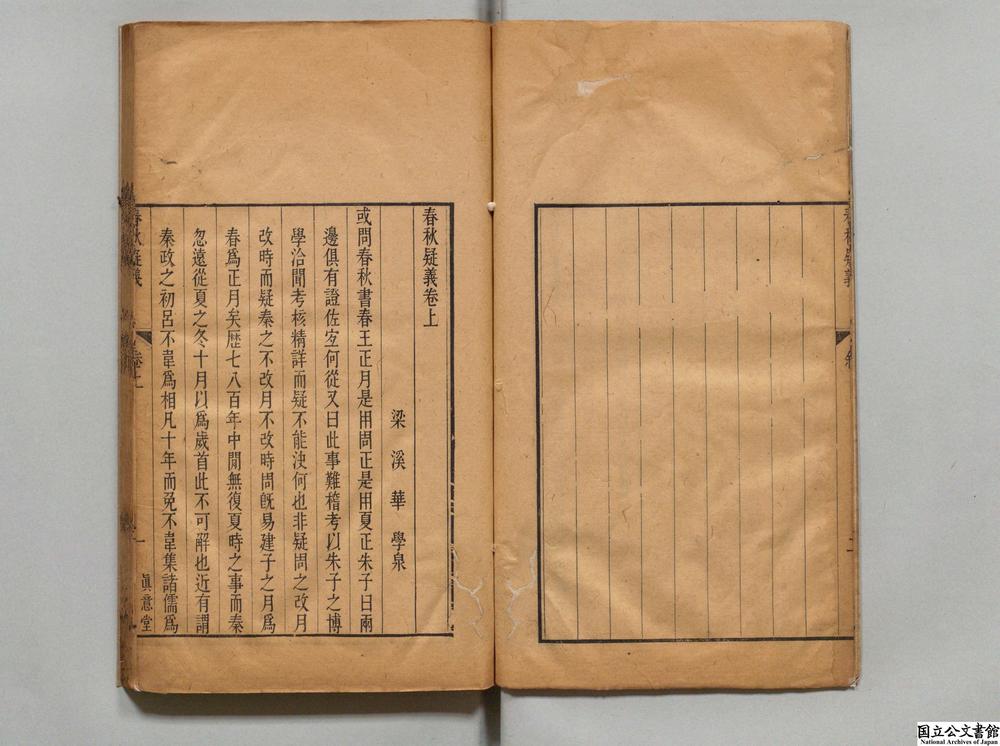 春秋疑義卷上
梁溪華學泉
或問春秋書春王正月是用周正是用夏正朱子曰兩
邊俱有證佐空何從又曰此事難稽考以朱子之博
學洽聞考核精詳而疑不能決何也非疑周之改月
改時而疑秦之不改月不改時周旣易建子之月爲
春爲正月矣歷七八百年中閒無復夏時之事而秦
忽遠從夏之冬十月以爲歲首此不可解也近有謂
秦政之初呂不韋爲相凡十年而免不韋集諸儒爲
春秋疑義
卷上
一
眞意堂
国立公文書館
National Archives of Japan